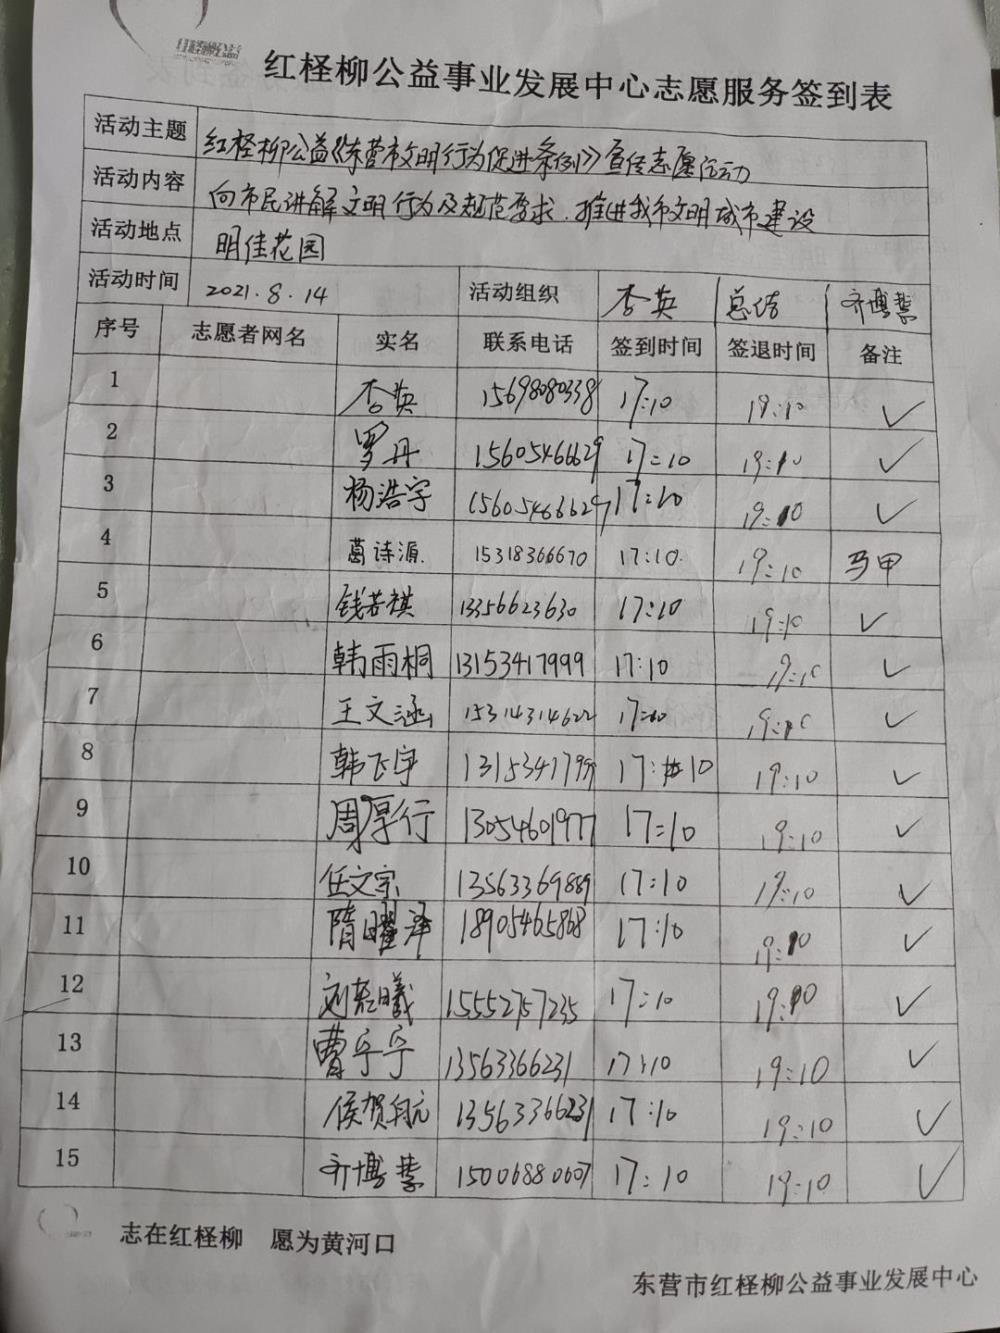 红柽柳公益
红柽柳公益事业发展中心志愿服务签到表
活动主题 红柽柳公益《东营市文明行为促进条例》宣传志愿活动
活动内容 向市民讲解文明行为及规范要求.推进我市文明城市建设
活动地点 明佳花园
活动时间 2021.8.14 活动组织 杏英 总结 齐博慧
序号 志愿者网名 实名 联系电话 签到时间 签退时间 备注
1 杏英 15698080338 17:10 19:10 ✓
2 罗丹 15605466629 17:10 19:10 ✓
3 杨浩宇 15605466629 17:10 19:10 ✓
4 葛诗源 15318366670 17:10 19:10 马甲
5 钱若祺 13356623630 17:10 19:10 ✓
6 韩雨桐 13153417999 17:10 19:10 ✓
7 王文涵 15314314622 17:10 19:10 ✓
8 韩飞宇 1315341799 17:10 19:10 ✓
9 周厚行 13054601977 17:10 19:10 ✓
10 任文宗 13563369889 17:10 19:10 ✓
11 隋曜泽 18905465868 17:10 19:10 ✓
12 15552757235 17:10 19:10 ✓
13 曹宁宁 13563366231 17:10 19:10 ✓
14 侯贺翔 13563366231 17:10 19:10 ✓
15 齐博慧 15006880607 17:10 19:10 ✓
志在红柽柳 愿为黄河口
东营市红柽柳公益事业发展中心